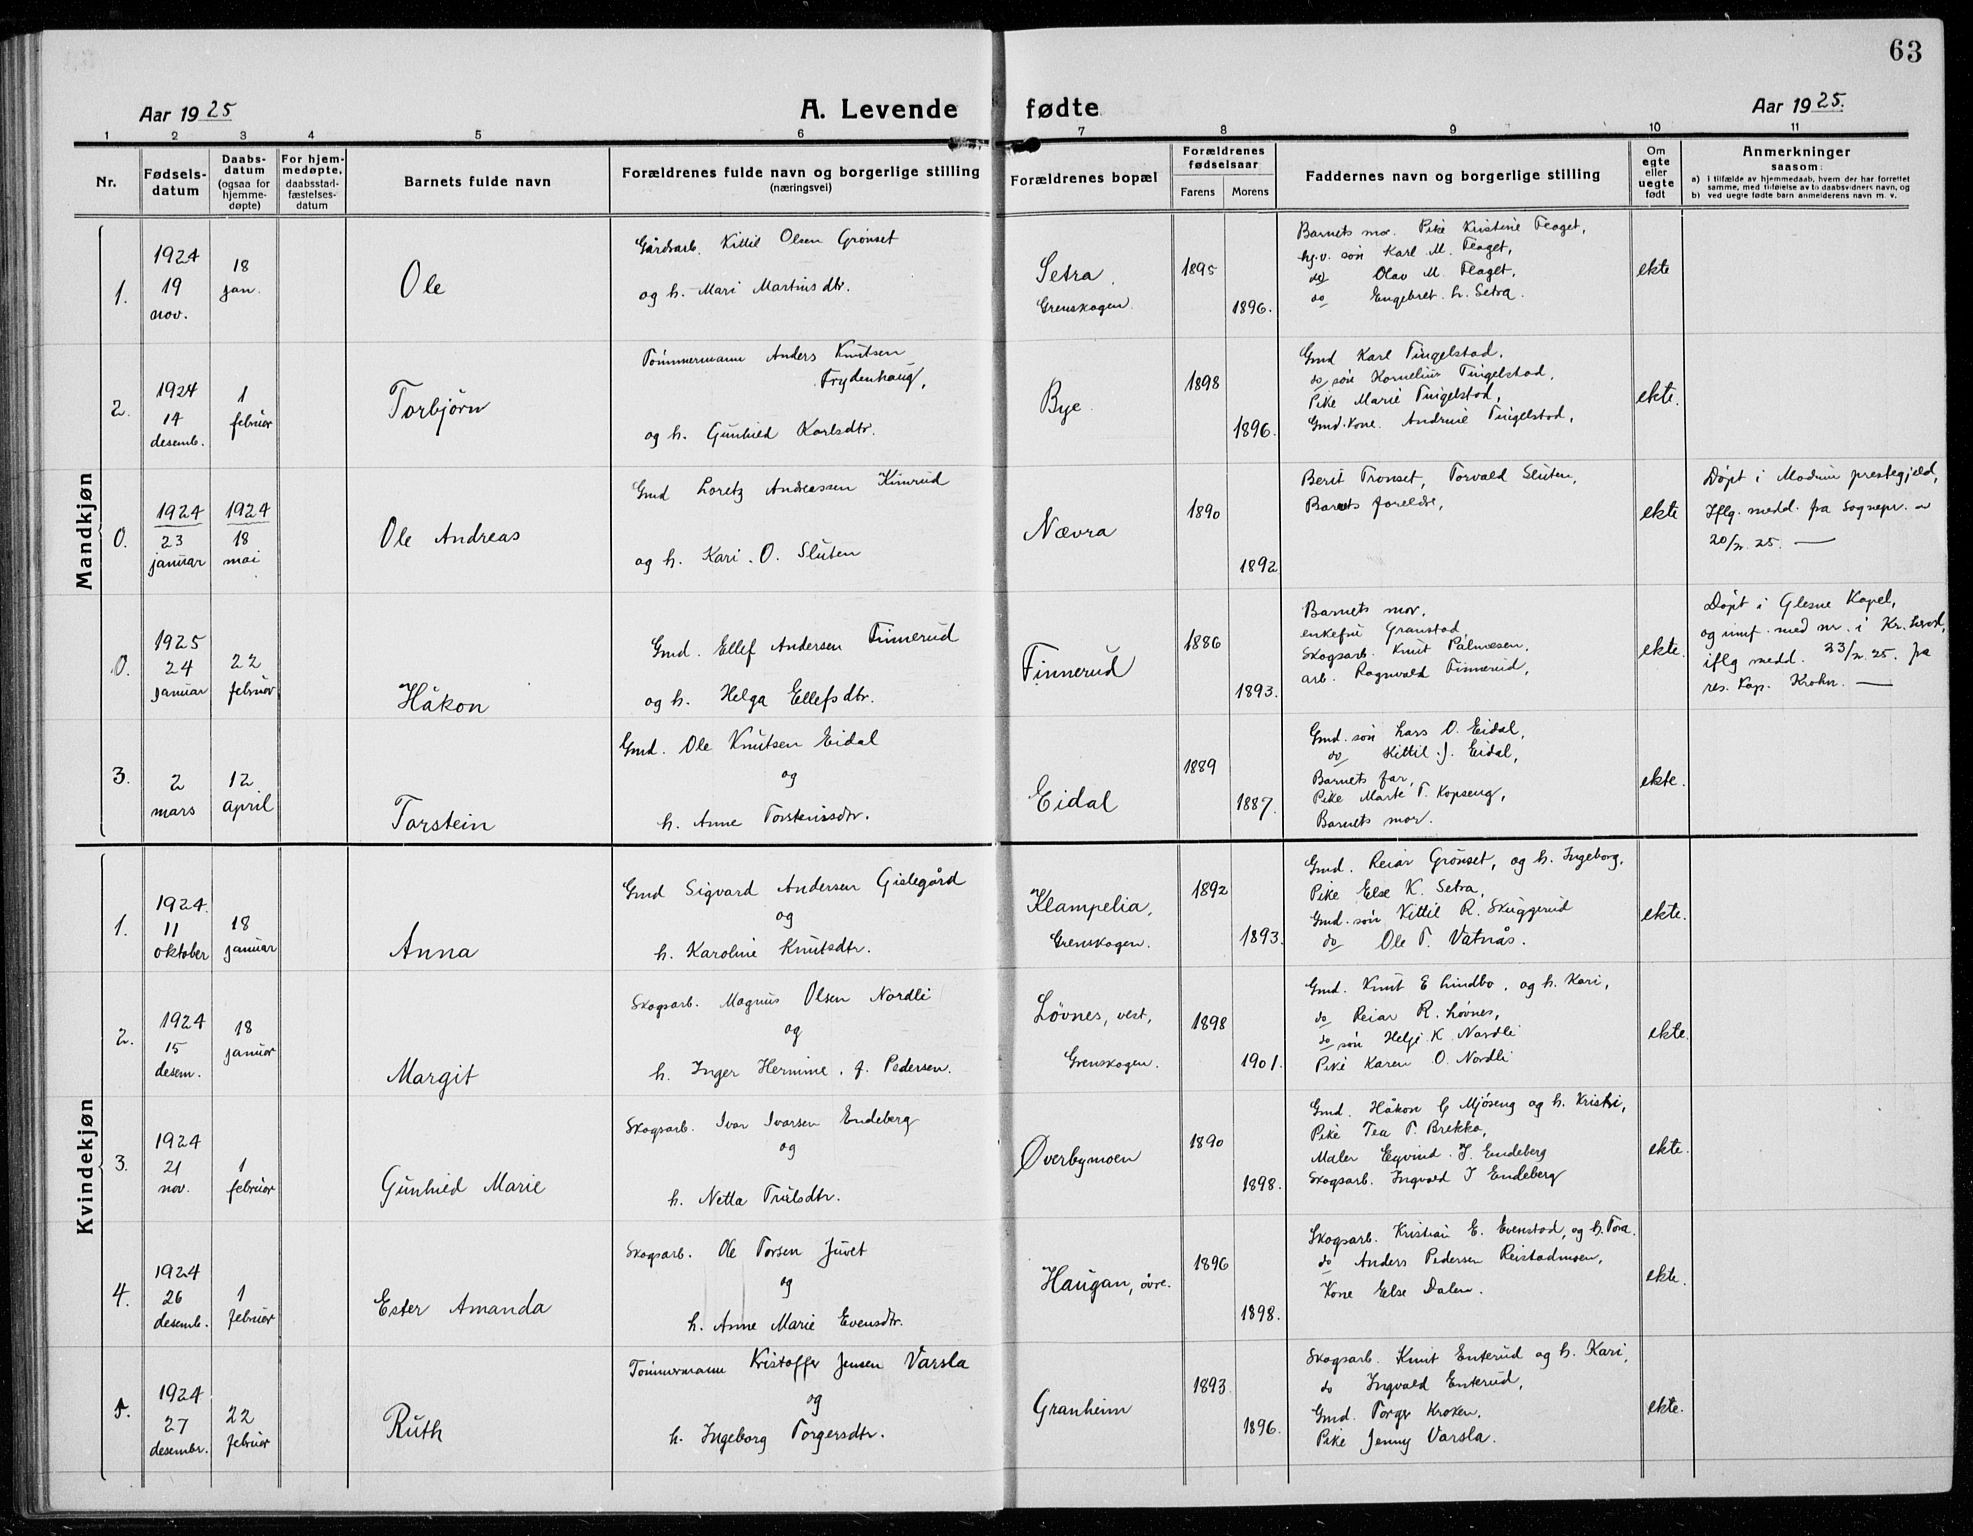 63
Aar 1925
A. Levende fødte
Aar 1925.
1 2 3 4 5 6 7 8 9 10 11
Nr.
Fødsels-
datum
Daabs-
datum
(ogsaa for
hjemme-
døpte)
For hjem-
medøpte,
daabsstad-
fæstelses-
datum
Barnets fulde navn
Forældrenes fulde navn og borgerlige stilling
(næringsvei)
Forældrenes bopæl
Forældrenes
fødselsaar
Farens Morens
Faddernes navn og borgerlige stilling
Om
egte
eller
uegte
født
Anmerkninger
saasom:
a) i tilfælde av hjemmedaab, hvem der har forrettet
samme, med tilføielse av to daabsvidners navn, og
b) ved uegte fødte barn anmelderens navn m. v.
Mandkjøn
1.
1924
19
nov.
18
jan.
Ole
Gårdsarb. Kittil Olsen Grønset
og h. Mari Martinsdtr.
Setra,
Grenskogen.
1895
1896.
Barnets mor. Pike Kristine Flaget,
søn Karl M. Flaget,
do Olav M. Flaget,
do Engebret. h. Setra.
ekte
2.
1924
14
desemb.
1
februar
Torbjørn
Tømmermann Anders Knutsen
Frydenhaug,
og h. Gunhild Karlsdtr.
Bye.
1898
1896.
Gmd Karl Tingelstad,
do søn Kornelius Tingelstad,
Pike Marie Tingelstad,
Gmd. Kone. Andrine Tingelstad,
ekte.
0.
1924
23
januar
1924
18
mai
Ole Andreas
Gmd Loretz Andreassen Kinnrud
og h. Kari. O. Sluten
Nævra
1890
1892
Berit Tronset, Torvald Sluten,
Barnets foreldre,
ekte
Døpt i Modum prestegjeld,
Iflg. medd. fra Sognepr.
20/2. 25. —
0.
1925
24
januar
22
februar
Håkon
Gmd. Ellef Andersen Finnerud
og h. Helga Ellefsdtr.
Finnerud
1886
1893.
Barnets mor,
enkefru Granstad,
Skogsarb. Knut Palmesen,
arb. Ragnvald Finnerud,
ekte.
Døpt i Glesne Kapel,
og innf. med nr. i Kr.herad,
iflg medd. 23/2. 25. fra
res. Kap. Krohn. —
3.
2
mars
12
april
Torstein
Gmd. Ole Knutsen Eidal
og
h. Anne Torsteinsdtr.
Eidal
1889
1887.
Gmd. søn Lars O. Eidal,
do Kittil. J. Eidal,
Barnets far,
Pike Marte T. Kopseng,
Barnets mor.
ekte.
Kvindekjøn
1.
1924.
11
oktober
18
januar
Anna
Gmd Sigvard Andersen Gislegård
og
h. Karoline Knutsdtr.
Klampelia,
Grenskogen.
1892
1893.
Gmd. Reiar Grønset, og h. Ingeborg,
Pike Else K. Setra,
Gmd. søn Kittil R. Skuggerud
do Ole T. Vatnås.
ekte.
2.
1924
15
desem.
18
januar
Margit
Skogsarb. Magnus Olsen Nordli
og
h. Inger Hermine, f. Pedersen.
Løvnes, vest,
Grenskogen.
1898
1901.
Gmd. Knut E Lindbo, og h. Kari,
do Reiar R. Løvnes,
do søn Helge K. Nordli
Pike Karen O. Nordli
ekte.
3.
1924
21
nov.
1
februar
Gunhild Marie
Skogsarb. Ivar Ivarsen Endeberg
og
h. Netta Trulsdtr.
Øverbymoen
1890
1898.
Gmd. Håkon G Mjøseng og h. Kristi,
Pike Tea T. Brekka,
Maler Eyvind. I. Endeberg
Skogsarb. Ingvald I Endeberg
ekte.
4.
1924
26
desemb.
1
februar
Ester Amanda
Skogsarb. Ole Torsen Juvet
og
h. Anne Marie Evensdtr.
Haugan, øvre.
1896
1898.
Skogsarb. Kristian E. Evenstad, og h. Tora.
do Anders Pedersen Reistadmoen,
Kone Else Dalen.
ekte.
5.
1924
27
desembr.
22
februar
Ruth
Tømmermann Kristoffer Jensen Varsla
og
h. Ingeborg Torgersdtr.
Granheim
1893.
1896.
Skogsarb. Knut Enterud og h. Kari,
do Ingvald Enterud,
Gmd. Torger Kroken,
Pike Jenny Varsla.
ekte.